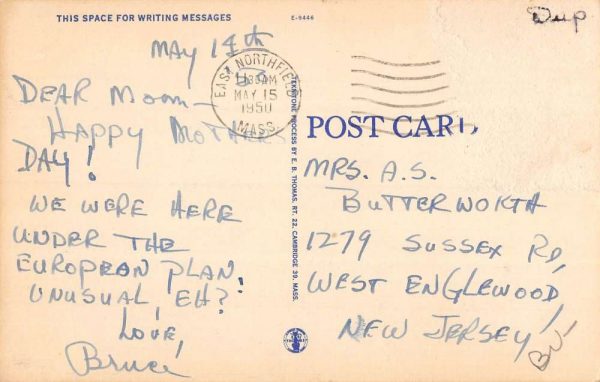 THIS SPACE FOR WRITING MESSAGES
E-9446
Dup
MAY 14th
DEAR MOM—
HAPPY MOTHERS
DAY!
WE WERE HERE
UNDER THE
EUROPEAN PLAN.
UNUSUAL, EH?
LOVE,
Bruce
EAST NORTHFIELD
MAY 15
1950
MASS.
"TEKSTONE PROCESS BY E. B. THOMAS, RT. 22, CAMBRIDGE 39, MASS.
POST CARD
MRS. A.S.
BUTTERWORTH
1279 SUSSEX RD,
WEST ENGLEWOOD,
NEW JERSEY